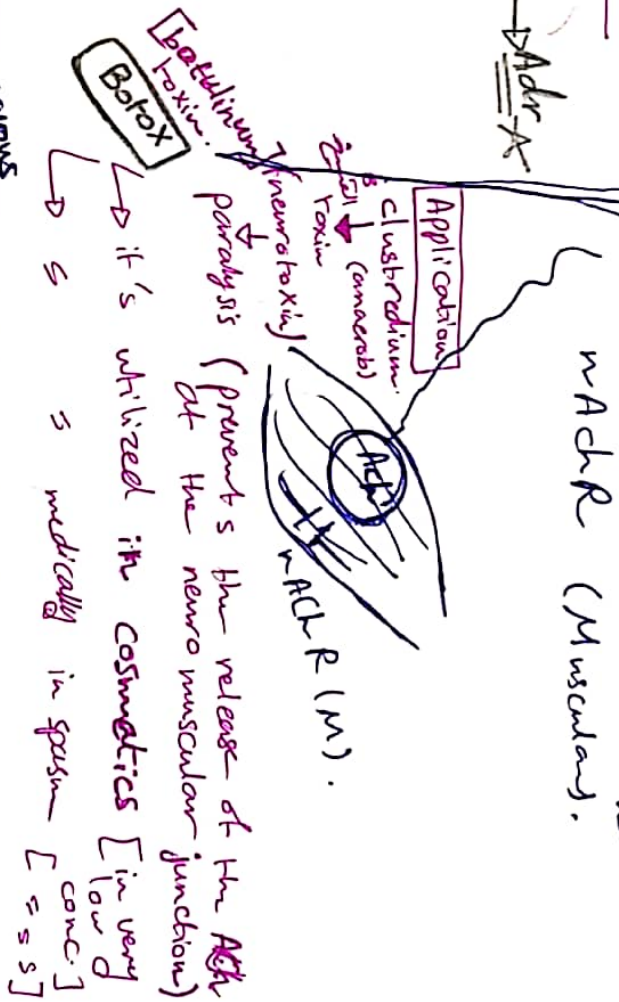 Adr
A
nAchR (Muscular).
Application
clustredium.
(anaerob)
toxin
[botulinum] (neurotoxin)
toxin.
Botox
paralysis (prevents the release of the Ach
at the neuromuscular junction)
it's utilized in cosmetics [in very
low
conc.]
s s medically in spasm [= = s]
Ach
nAChR (M).